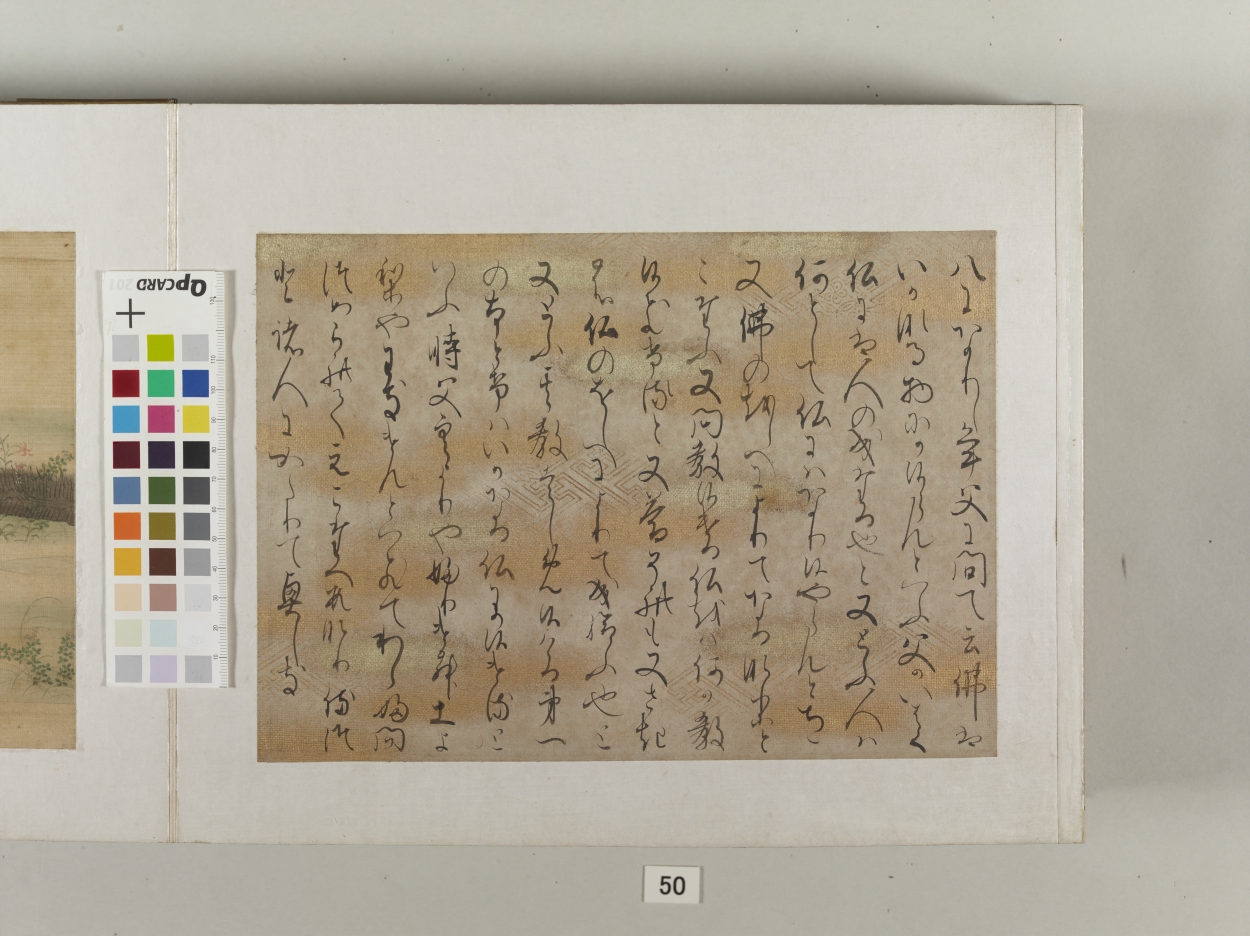 八になりし年父に問て云佛は
いかなる物にか候らんといふ父かいはく
仏には人の成たる也と又とふ人は
何として仏にはなり候やらんとちゝ
又佛のをしへによりてなるなりと
こたふ又問教候ける仏をは何か教
候けると又答それも又さき
の仏のをしへによりて成給ふ也と
又とふ其教はしめ候ける第一
の はいかなる仏に候けると
いふ時父空よりやふりけん土よ
りやわきけんといひてわらふ問
つめられてえこたへすなり侍つ
と諸人にかたりて興しき
QPCARD 201
50